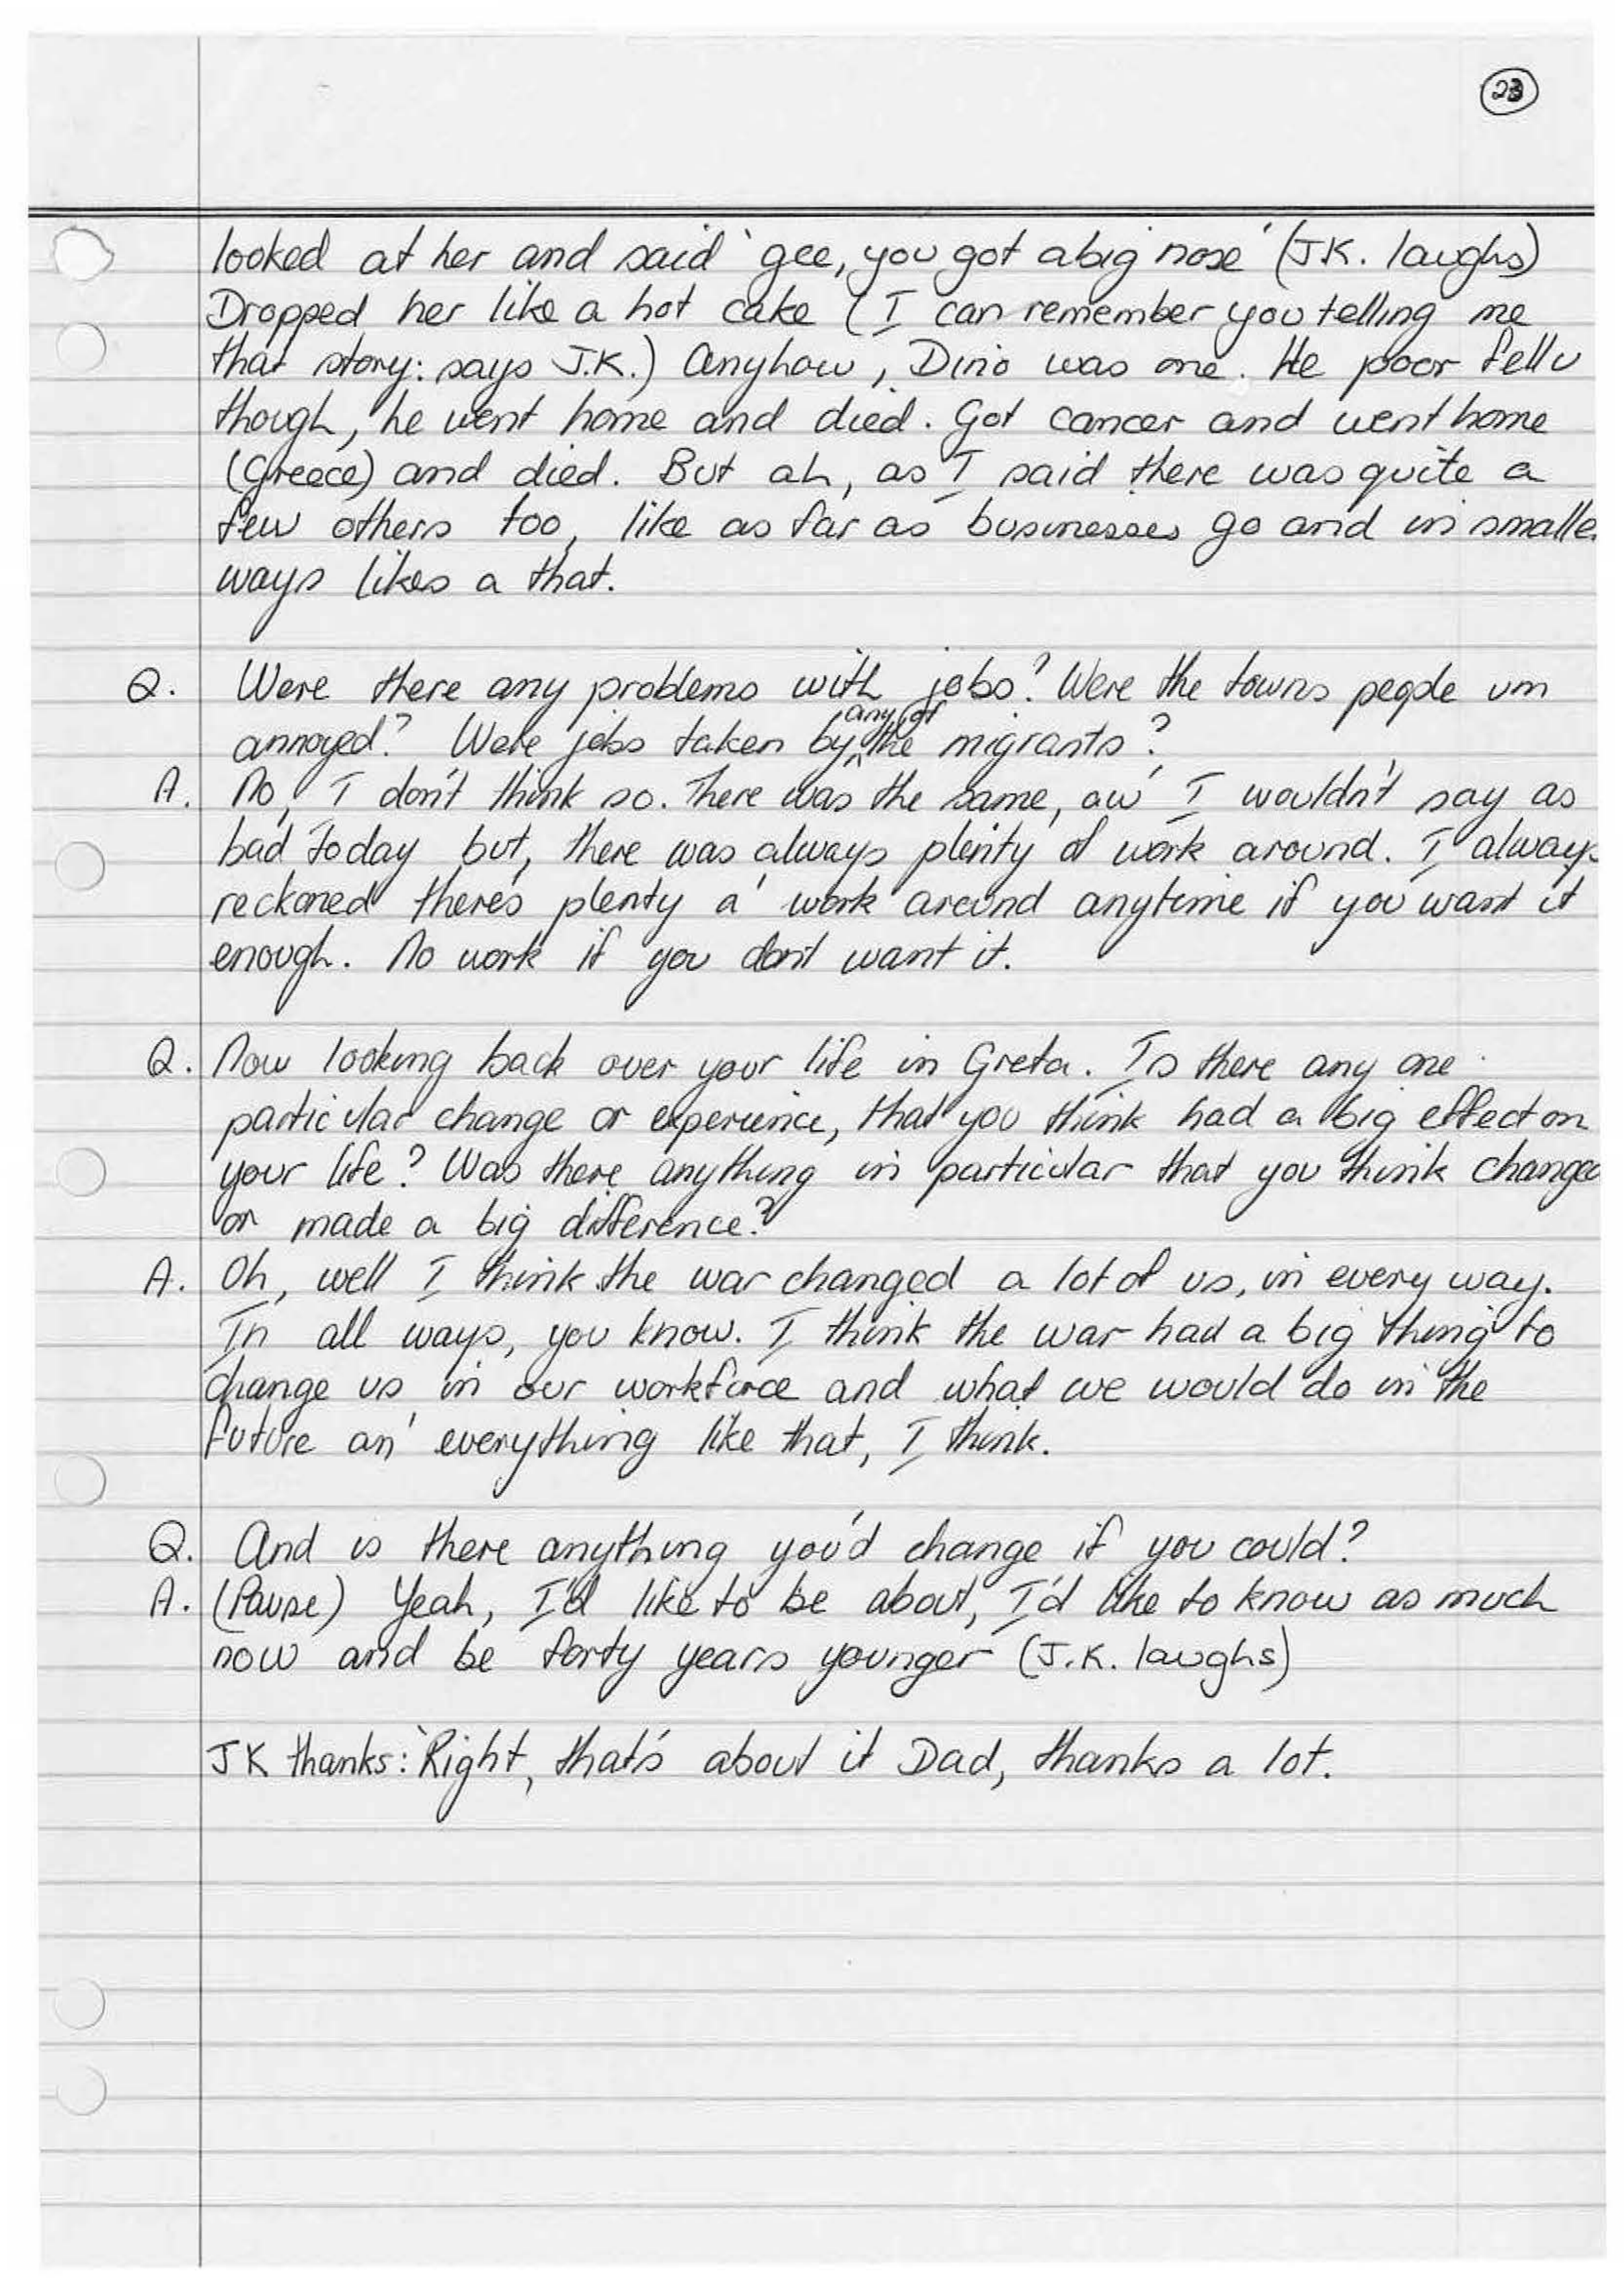 23
looked at her and said 'gee, you got a big nose' (J.K. laughs)
Dropped her like a hot cake (I can remember you telling me
that story: says J.K.) Anyhow, Dino was one. He poor fella
though, he went home and died. Got cancer and went home
(Greece) and died. But ah, as I said there was quite a
few others too, like as far as businesses go and in smaller
ways likes a that.
Q. Were there any problems with jobs? Were the towns people um
annoyed? Were jobs taken by any of the migrants?
A. No, I don't think so. There was the same, aw' I wouldn't say as
bad today but, there was always plenty of work around. I always
reckoned there's plenty a' work around anytime if you want it
enough. No work if you don't want it.
Q. Now looking back over your life in Greta. Is there any one
particular change or experience, that you think had a big effect on
your life? Was there anything in particular that you think changed
or made a big difference?
A. Oh, well I think the war changed a lot of us, in every way.
In all ways, you know. I think the war had a big thing to
change us in our workforce and what we would do in the
future an' everything like that, I think.
Q. And is there anything you'd change if you could?
A. (Pause) Yeah, I'd like to be about, I'd like to know as much
now and be forty years younger (J.K. laughs)
JK thanks: 'Right, that's about it Dad, thanks a lot.